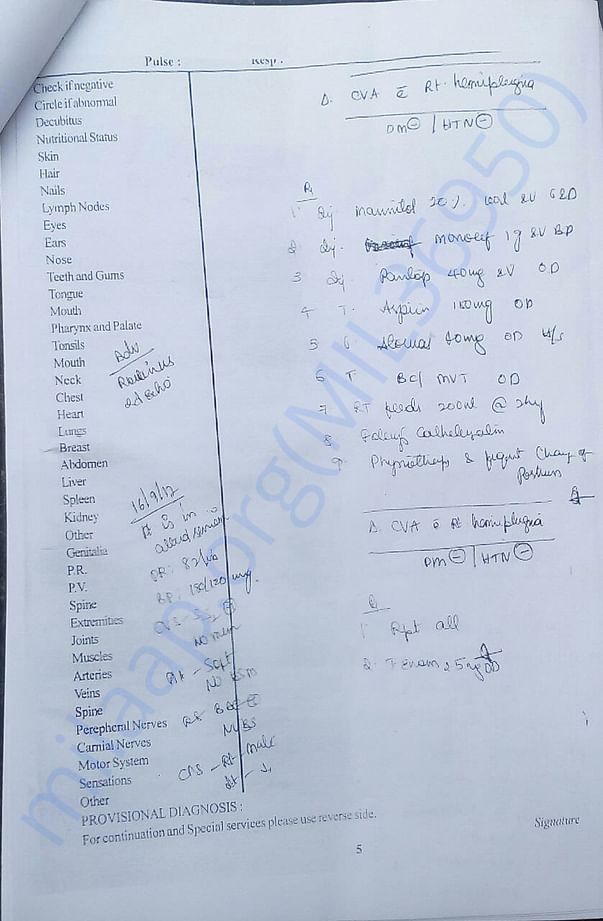 Pulse : Resp :
Check if negative
Circle if abnormal
Decubitus
Nutritional Status
Skin
Hair
Nails
Lymph Nodes
Eyes
Ears
Nose
Teeth and Gums
Tongue
Mouth
Pharynx and Palate
Tonsils
Mouth
Neck
Chest
Heart
Lungs
Breast
Abdomen
Liver
Spleen
Kidney
Other
Genitalia
P.R.
P.V.
Spine
Extremities
Joints
Muscles
Arteries
Veins
Spine
Perepheral Nerves
Carnial Nerves
Motor System
Sensations
Other
PROVISIONAL DIAGNOSIS :
For continuation and Special services please use reverse side.
Adv
2d echo
16/9/12
PR: 82/
BP: 150/120 mmg.
No mur
PA - Soft
NVBS
CNS - Rt
Δ. CVA c̄ Rt. hemiplegia
DM ⊖ / HTN ⊖
Rx
1 Inj. Mannitol 20%. IV
2 Inj. Monocef 1g IV BD
3 Inj. Pantop 40mg IV OD
4 T. Aspirin 150mg OD
5 40mg OD H/S
6 T BC/ MVT OD
7 RT feeds 200ml @ 2hly
8 Foleys
9 Physiotherapy & frequent Change of
Position
Δ. CVA c̄ Rt hemiplegia
DM ⊖ / HTN ⊖
Rx
1 Rpt all
2. T Enam 2.5mg OD
Signature
5
milaap.org(MIL36950)